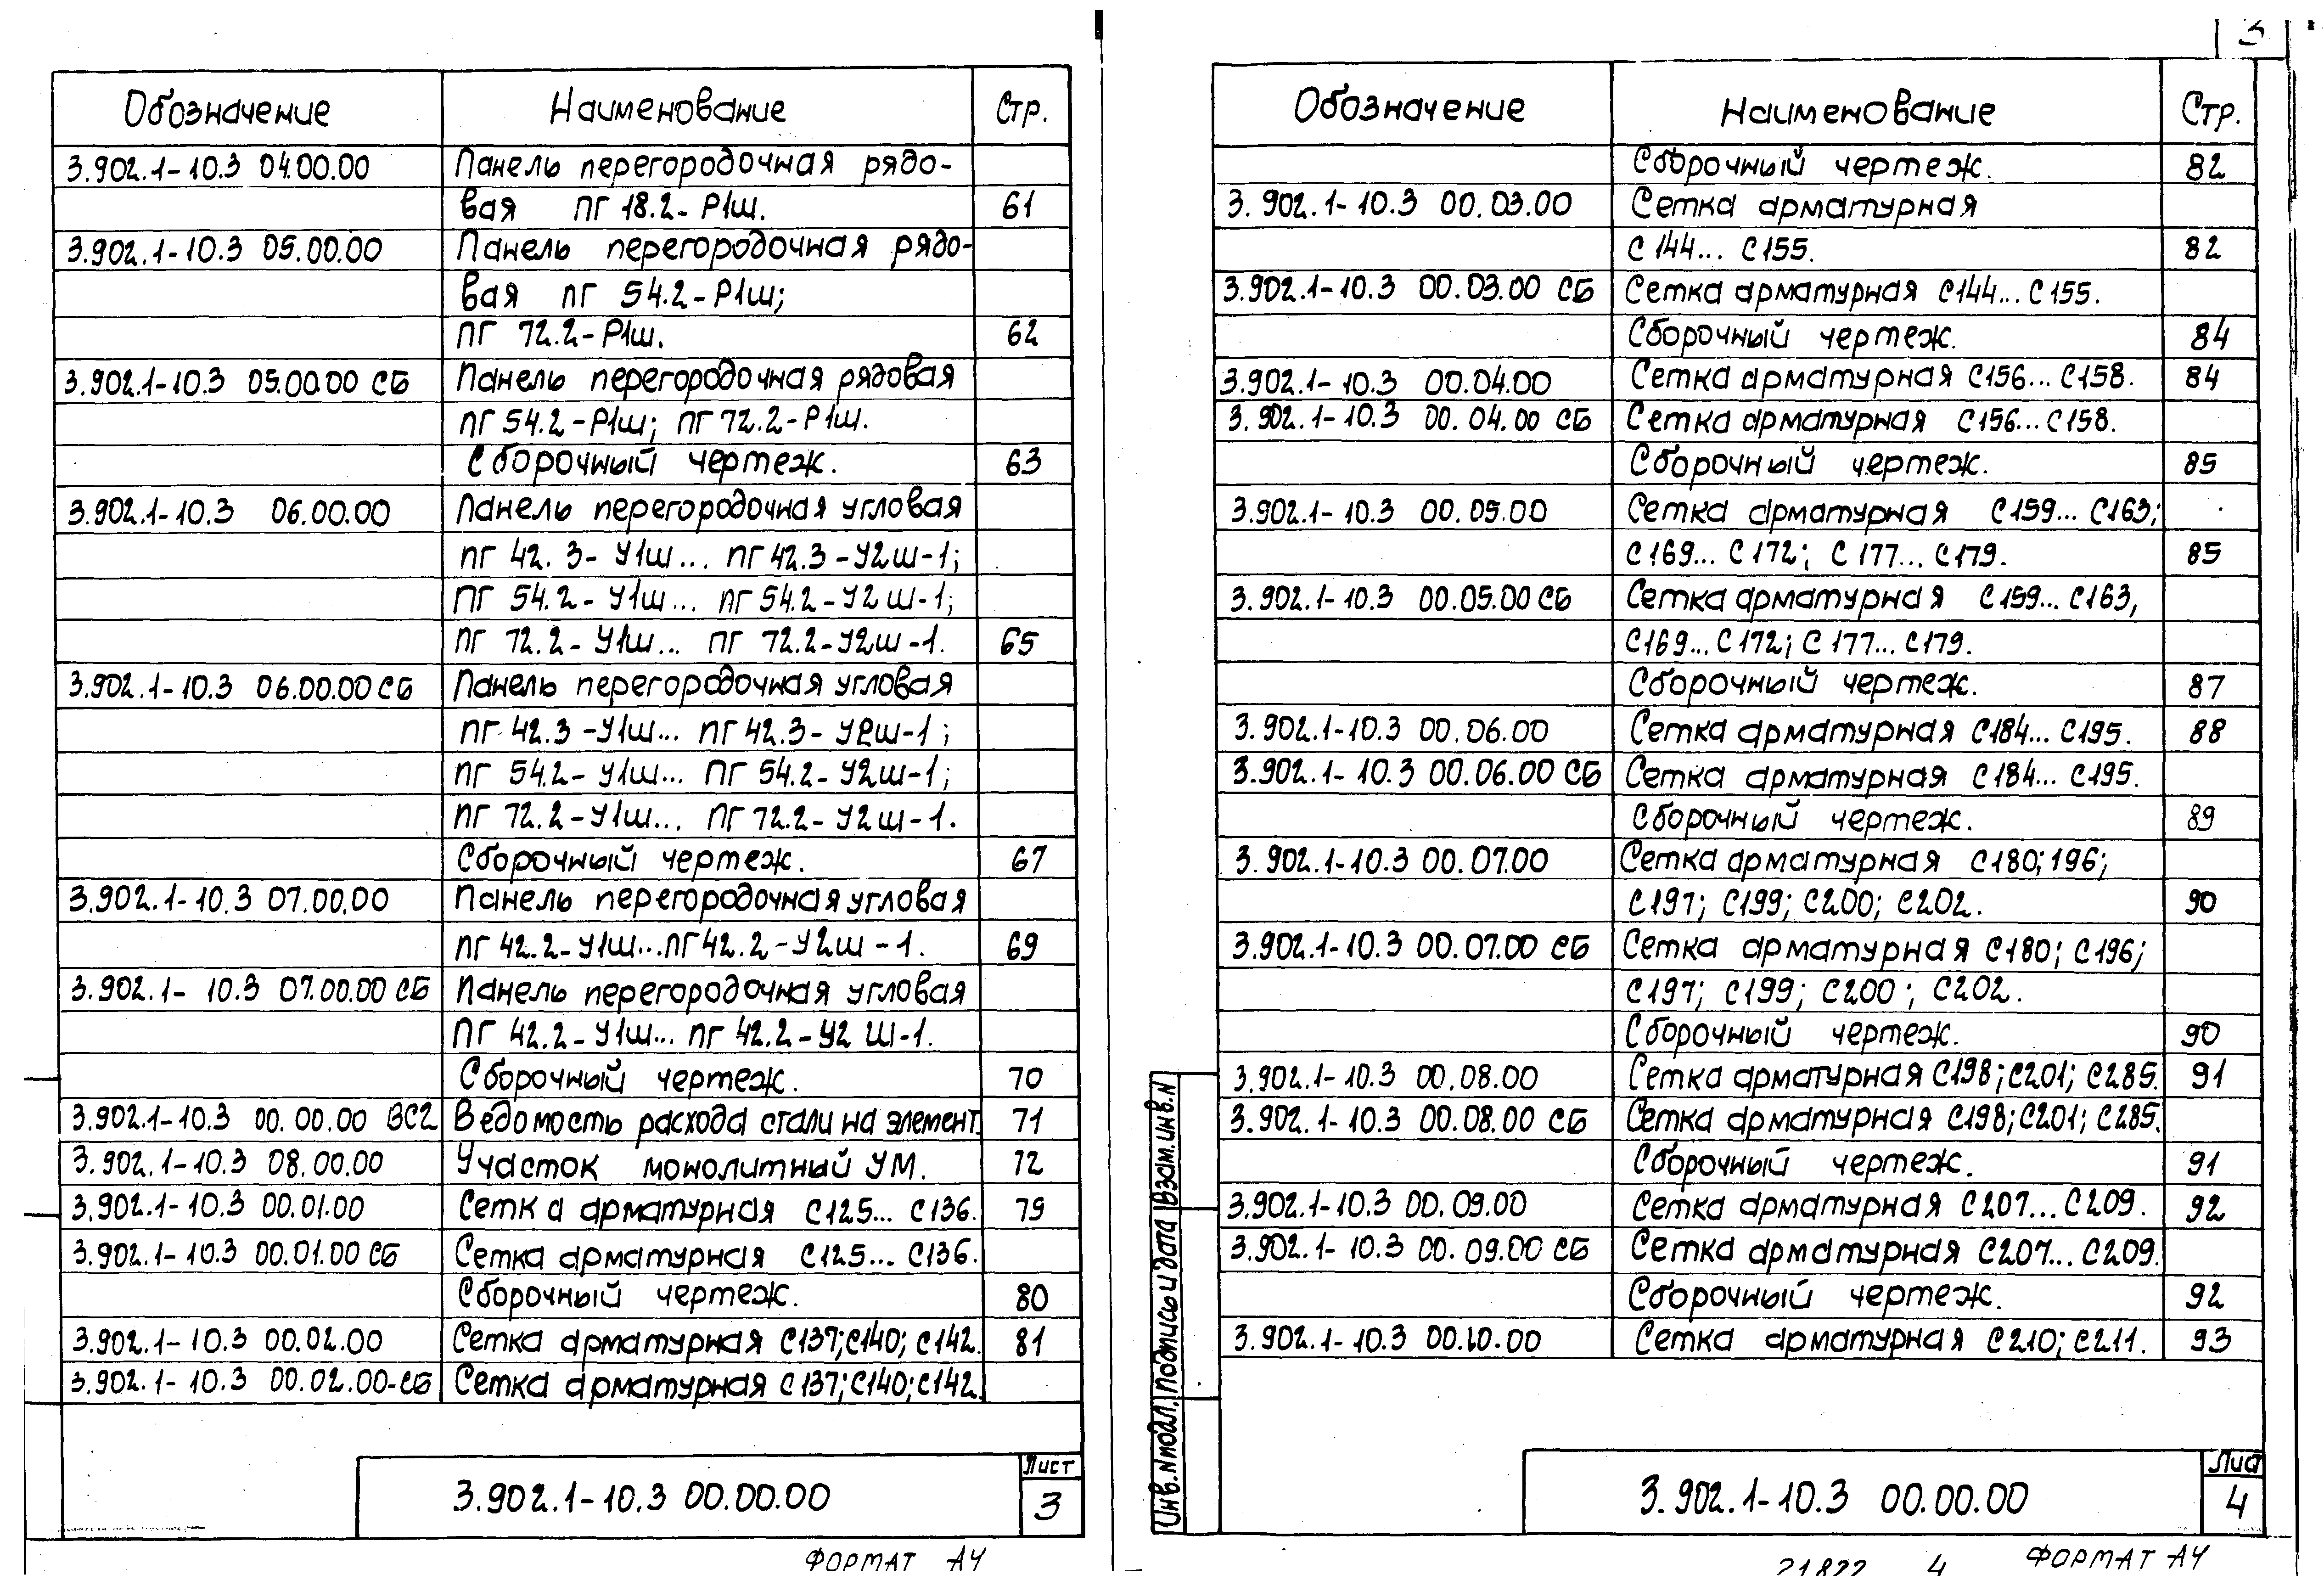 Обозначение Наименование Стр.
3.902.1-10.3 04.00.00 Панель перегородочная рядо-
вая ПГ 18.2-Р1ш. 61
3.902.1-10.3 05.00.00 Панель перегородочная рядо-
вая ПГ 54.2-Р1ш;
ПГ 72.2-Р1ш. 62
3.902.1-10.3 05.00.00 СБ Панель перегородочная рядовая
ПГ 54.2-Р1ш; ПГ 72.2-Р1ш.
Сборочный чертеж. 63
3.902.1-10.3 06.00.00 Панель перегородочная угловая
ПГ 42.3-У1ш... ПГ 42.3-У2ш-1;
ПГ 54.2-У1ш... ПГ 54.2-У2ш-1;
ПГ 72.2-У1ш... ПГ 72.2-У2ш-1. 65
3.902.1-10.3 06.00.00 СБ Панель перегородочная угловая
ПГ 42.3-У1ш... ПГ 42.3-У2ш-1;
ПГ 54.2-У1ш... ПГ 54.2-У2ш-1;
ПГ 72.2-У1ш... ПГ 72.2-У2ш-1.
Сборочный чертеж. 67
3.902.1-10.3 07.00.00 Панель перегородочная угловая
ПГ 42.2-У1ш...ПГ 42.2-У2ш-1. 69
3.902.1-10.3 07.00.00 СБ Панель перегородочная угловая
ПГ 42.2-У1ш... ПГ 42.2-У2 ш-1.
Сборочный чертеж. 70
3.902.1-10.3 00.00.00 ВС2 Ведомость расхода стали на элемент. 71
3.902.1-10.3 08.00.00 Участок монолитный УМ. 72
3.902.1-10.3 00.01.00 Сетка арматурная С125... С136. 79
3.902.1-10.3 00.01.00 СБ Сетка арматурная С125... С136.
Сборочный чертеж. 80
3.902.1-10.3 00.02.00 Сетка арматурная С137;С140; С142. 81
3.902.1-10.3 00.02.00-СБ Сетка арматурная С137;С140;С142.
3.902.1-10.3 00.00.00
Лист
3
ФОРМАТ А4
3
Обозначение Наименование Стр.
Сборочный чертеж. 82
3.902.1-10.3 00.03.00 Сетка арматурная
С144... С155. 82
3.902.1-10.3 00.03.00 СБ Сетка арматурная С144... С155.
Сборочный чертеж. 84
3.902.1-10.3 00.04.00 Сетка арматурная С156... С158. 84
3.902.1-10.3 00.04.00 СБ Сетка арматурная С156...С158.
Сборочный чертеж. 85
3.902.1-10.3 00.05.00 Сетка арматурная С159... С163;
С169... С172; С177... С179. 85
3.902.1-10.3 00.05.00 СБ Сетка арматурная С159... С163,
С169...С172; С177... С179.
Сборочный чертеж. 87
3.902.1-10.3 00.06.00 Сетка арматурная С184... С195. 88
3.902.1-10.3 00.06.00 СБ Сетка арматурная С184... С195.
Сборочный чертеж. 89
3.902.1-10.3 00.07.00 Сетка арматурная С180;196;
С197; С199; С200; С202. 90
3.902.1-10.3 00.07.00 СБ Сетка арматурная С180; С196;
С197; С199; С200; С202.
Сборочный чертеж. 90
3.902.1-10.3 00.08.00 Сетка арматурная С198;С201; С285. 91
3.902.1-10.3 00.08.00 СБ Сетка арматурная С198;С201; С285.
Сборочный чертеж. 91
3.902.1-10.3 00.09.00 Сетка арматурная С207...С209. 92
3.902.1-10.3 00.09.00 СБ Сетка арматурная С207...С209.
Сборочный чертеж. 92
3.902.1-10.3 00.10.00 Сетка арматурная С210; С211. 93
Инв.№подл. Подпись и дата Взам.инв.№
3.902.1-10.3 00.00.00
Лис
4
21822 4
ФОРМАТ А4